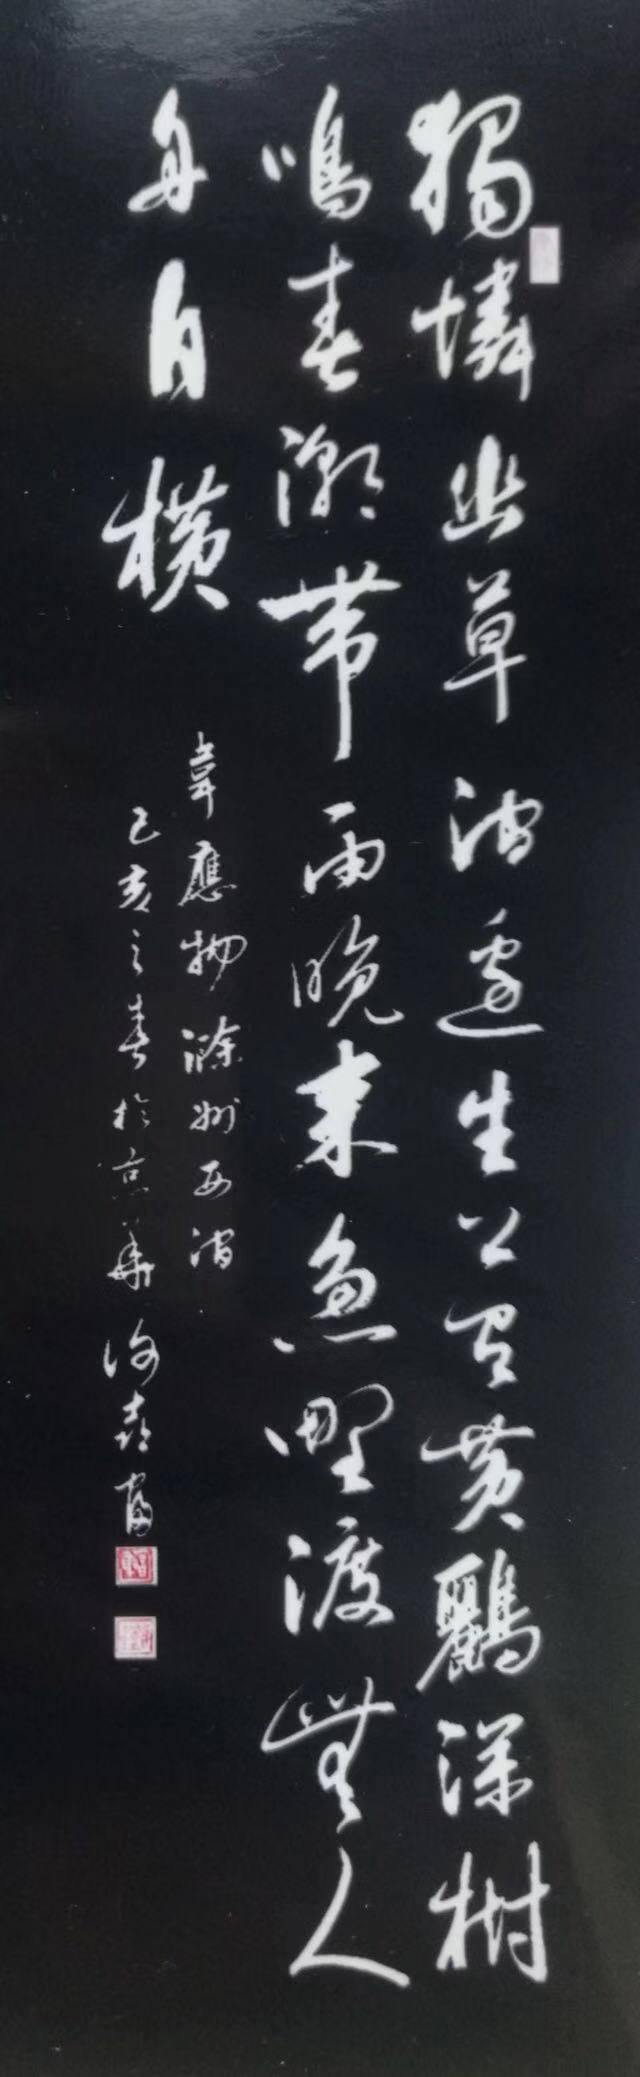 獨憐幽草澗邊生上有黃鸝深樹
鳴春潮帶雨晚來急野渡無人
舟自橫
韋應物滁州西澗
己亥之春於京華